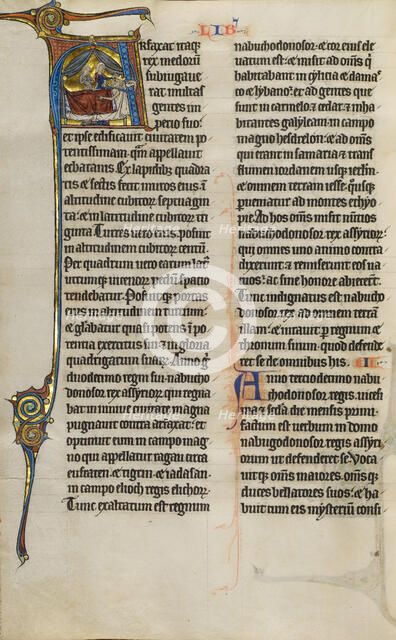 LIB
Arfaxat itaq;
rex medorũ
subiugaue
rat multas
gentes im
perio suo.
et ipse edificauit ciuitatem po
tentissimam. quã appellauit
ecbatanis. Ex lapidib; quadra
tis ⁊ sectis fecit muros eius. ĩ
altitudine cubitor septuagin
ta. ⁊ in latitudine cubitor tri
ginta. Turres uero ei posuit
in altitudinem cubitor centũ.
Per quadrum uero earum lat
utrumq; uicenor pedũ spacio
tendebatur. Posuitq; portas
eius in altitudinem turrium.
⁊ glabatur quasi potens ĩ po
tentia exercitus sui. ⁊ in gloria
quadrigarum suar. Anno g
duodecimo regni sui nabucho
donosor rex assyrior qui regna
bat in niniue ciuitate magna
pugnauit contra arfaxat. et
optinuit eum in campo mag
no qui appellatur ragau circa
eufraten. ⁊ tigrin. ⁊ iadasan.
in campo elioch regis elichor.
Tunc exaltatum est regnum
nabuchodonosor. ⁊ cor eius ele
uatum est. ⁊ misit ad oms q
habitabant in cylicia ⁊ dama
co ⁊ lybano. et ad gentes que
sunt in carmelo. ⁊ cedar. ⁊ inha
bitantes galyleam in campo
magno hesdrelon. ⁊ ad oms
qui erant in samaria ⁊ trans
flumen iordanem usq; ierlm.
⁊ omnem terram iesse. quousq;
pueniatur ad montes ethyo
pie. Ad hos oms misit nũtios
nabuchodonosor rex assyrior.
qui omnes uno animo contra
dixerunt. ⁊ remiserunt eos ua
cuos. ⁊ sine honore abiecerũt.
Tunc indignatus est nabucho
donosor rex ad omnem terrã
illam. ⁊ iurauit p regnum ⁊
thronum suum. quod defende
ret se de omnibus his. I
Anno terciodecimo nabu
chodonosor regis. uicesi
ma scda die mensis primi.
factum est uerbum in domo
nabugodonosor regis assyri
orum ut defenderet se. Voca
uitq; oms maiores. omsq;
duces bellatores suos. ⁊ ha
buit cum eis mysterium consi